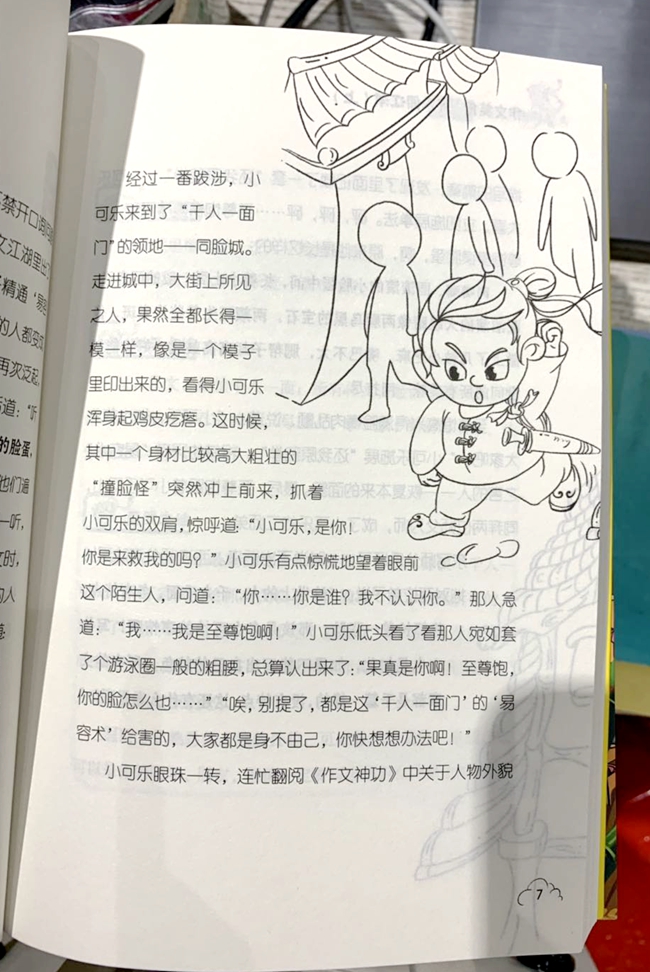 禁开口调
文江湖里
精通‘易
的人都变成
再次泛起
道：“听
的脸蛋，
他们遍
一听，
文时，
的人
经过一番跋涉，小
可乐来到了“千人一面
门”的领地——同脸城。
走进城中，大街上所见
之人，果然全都长得一
模一样，像是一个模子
里印出来的，看得小可乐
浑身起鸡皮疙瘩。这时候，
其中一个身材比较高大粗壮的
“撞脸怪”突然冲上前来，抓着
小可乐的双肩，惊呼道：“小可乐，是你！
你是来救我的吗？”小可乐有点惊慌地望着眼前
这个陌生人，问道：“你……你是谁？我不认识你。”那人急
道：“我……我是至尊饱啊！”小可乐低头看了看那人宛如套
了个游泳圈一般的粗腰，总算认出来了：“果真是你啊！至尊饱，
你的脸怎么也……”“唉，别提了，都是这‘千人一面门’的‘易
容术’给害的，大家都是身不由己，你快想想办法吧！”
小可乐眼珠一转，连忙翻阅《作文神功》中关于人物外貌
7